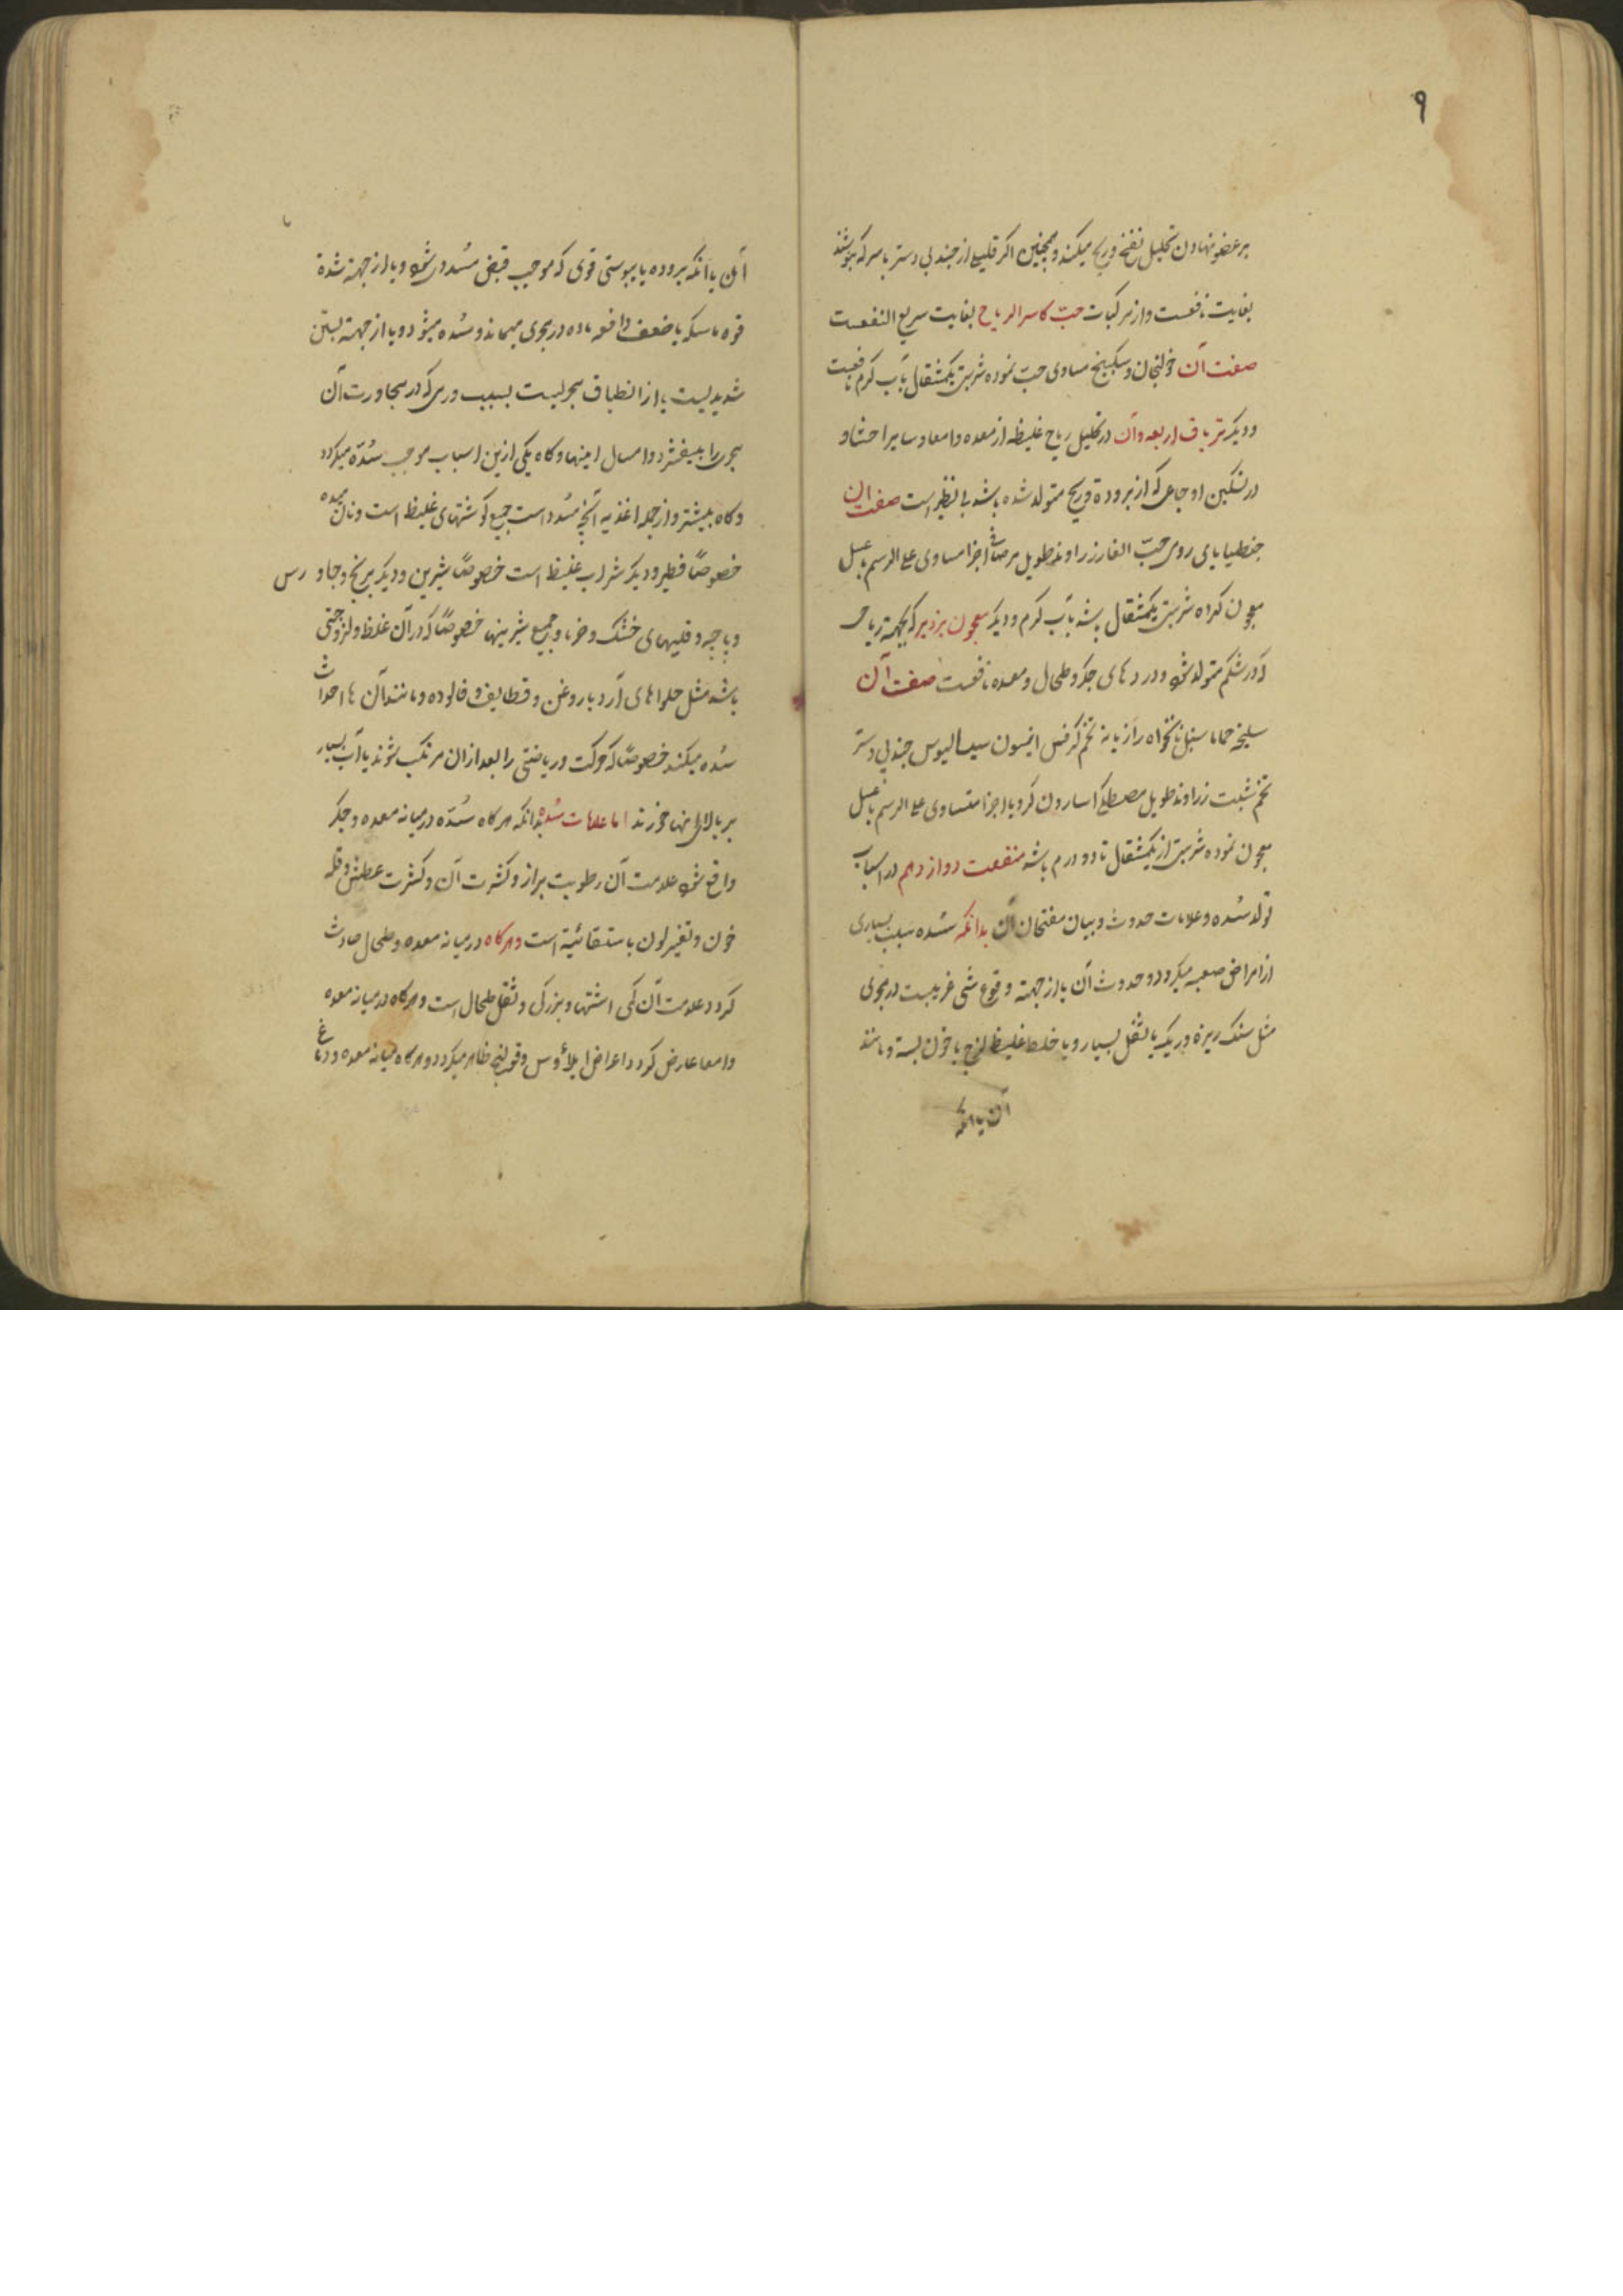 ۹
بر عضو نهادن تحلیل نفخ و ریح میکند و همچنین اکر قلیلی از جندبی دستر با سرکه بنوشند
بغایت نافعست و از مرکبات حبّ کاسر الریاح بغایت سریع النفعست
صفت آن خولنجان و سکبینج مساوی حبّ نموده شربتی یکمثقال بآب کرم نافعست
و دیکر تریاق اربعه و آن در تحلیل ریاح غلیظه از معده و امعا و سایر احشا و
در تسکین اوجاعی که از بروده و ریح متولد شده باشد بی نظیر است صفت ان
جنطیانای رومی حبّ الغار زراوند طویل مرصاف اجزا مساوی علی الرسم بعسل
معجون کرده شربتی یکمثقال باشد بآب کرم و دیکر معجون بزدیر که بجهة ریاحی
که در شکم متولد شود و دردهای جکر و طحال و معده نافعست صفت آن
سلیخه حماما سنبل نانخواه رازیانه تخم کرفس انیسون سیسالیوس جندبی دستر
تخم شبت زراوند طویل مصطکی اسارون کرویا اجزا متساوی علی الرسم با عسل
معجون نموده شربتی از یکمثقال تا دو درم باشد منفعت دوازدهم در اسباب
تولد سُده و علامات حدوث و بیان مفتحان آن بدانکه سُده سبب بسیاری
از امراض صعبه میکردد و حدوث آن یا از جهة وقوع شی غریبست در مجری
مثل سنک ریزه و ریک یا ثفل بسیار و یا خلط غلیظ لزج یا خون بسته و مانند
آن یا انکه
آن یا انکه بروده یا یبوستی قوی که موجب قبض مسدود شود و یا از جهة شدة
قوه ماسکه یا ضعف دافعه ماده در مجری میماند و سُده میشود و یا از جهة بستن
شدیدیست یا از انطباق مجریست بسبب ورمی که در مجاورت آن
مجری را بیفشرد و امسال اینها و کاه یکی ازین اسباب موجب سُدّه میکردد
و کاه بیشتر و از جمله اغذیه آنچه مُسدد است جمیع کوشتهای غلیظ است و نان میده
خصوصاً فطیر و دیکر شراب غلیظ است خصوصاً شیرین و دیکر برنج و جاورس
و پاچه و قلیهای خشک و خرما و جمیع شیرینها خصوصاً که در آن غلظ و لزوجتی
باشد مثل حلواهای آرد با روغن و قطایف و فالوده و مانند آن ها احداث
سُده میکند خصوصاً که حرکت و ریاضتی را بعد از ان مرتکب شوند یا آب بسیار
بر بالای اینها خورند اما علامات سُدّه بدانکه هرکاه سُدّه در میانه معده و جکر
واقع شود علامت آن رطوبت براز و کثرت آن و کثرت عطش و قلة
خون و تغیر لون باستسقائیة است و هرکاه در میانه معده و طحال حادث
کردد علامت آن کمی اشتها و بزرکی و ثقل طحال است و هرکاه در میانه معده
و امعا عارض کردد اعراض ایلاؤس و قولنج ظاهر میکردد و هرکاه میانه معده و دماغ